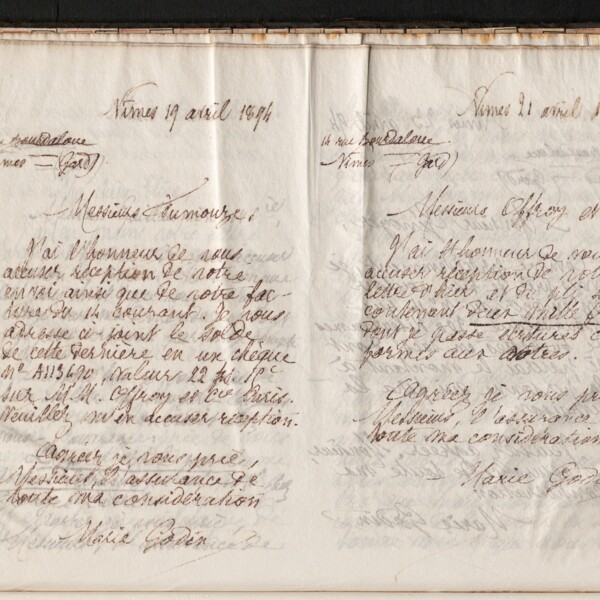 Nîmes 19 avril 1894
Bourdaloue
(Gard)
Messieurs
J'ai l'honneur de vous
accuser réception de votre
envoi ainsi que de votre fac-
ture du 14 courant. Je vous
adresse ci joint le solde
de cette dernière, en un chèque
Nº A113690, valeur 22 fr.
sur M.M. Offroy et Cie Paris.
Veuillez m'en accuser réception.
Agréez je vous prie,
Messieurs, l'assurance de
toute ma considération
Marie Godin
Nîmes 21 avril
14 rue Bourdaloue
Nîmes — (Gard)
Messieurs Offroy et
J'ai l'honneur de
accuser réception de
lettre d'hier et du pli
contenant deux mille
dont je passe écritures
formes aux vôtres.
Agréez je vous
Messieurs, l'assurance
toute ma considération
Marie